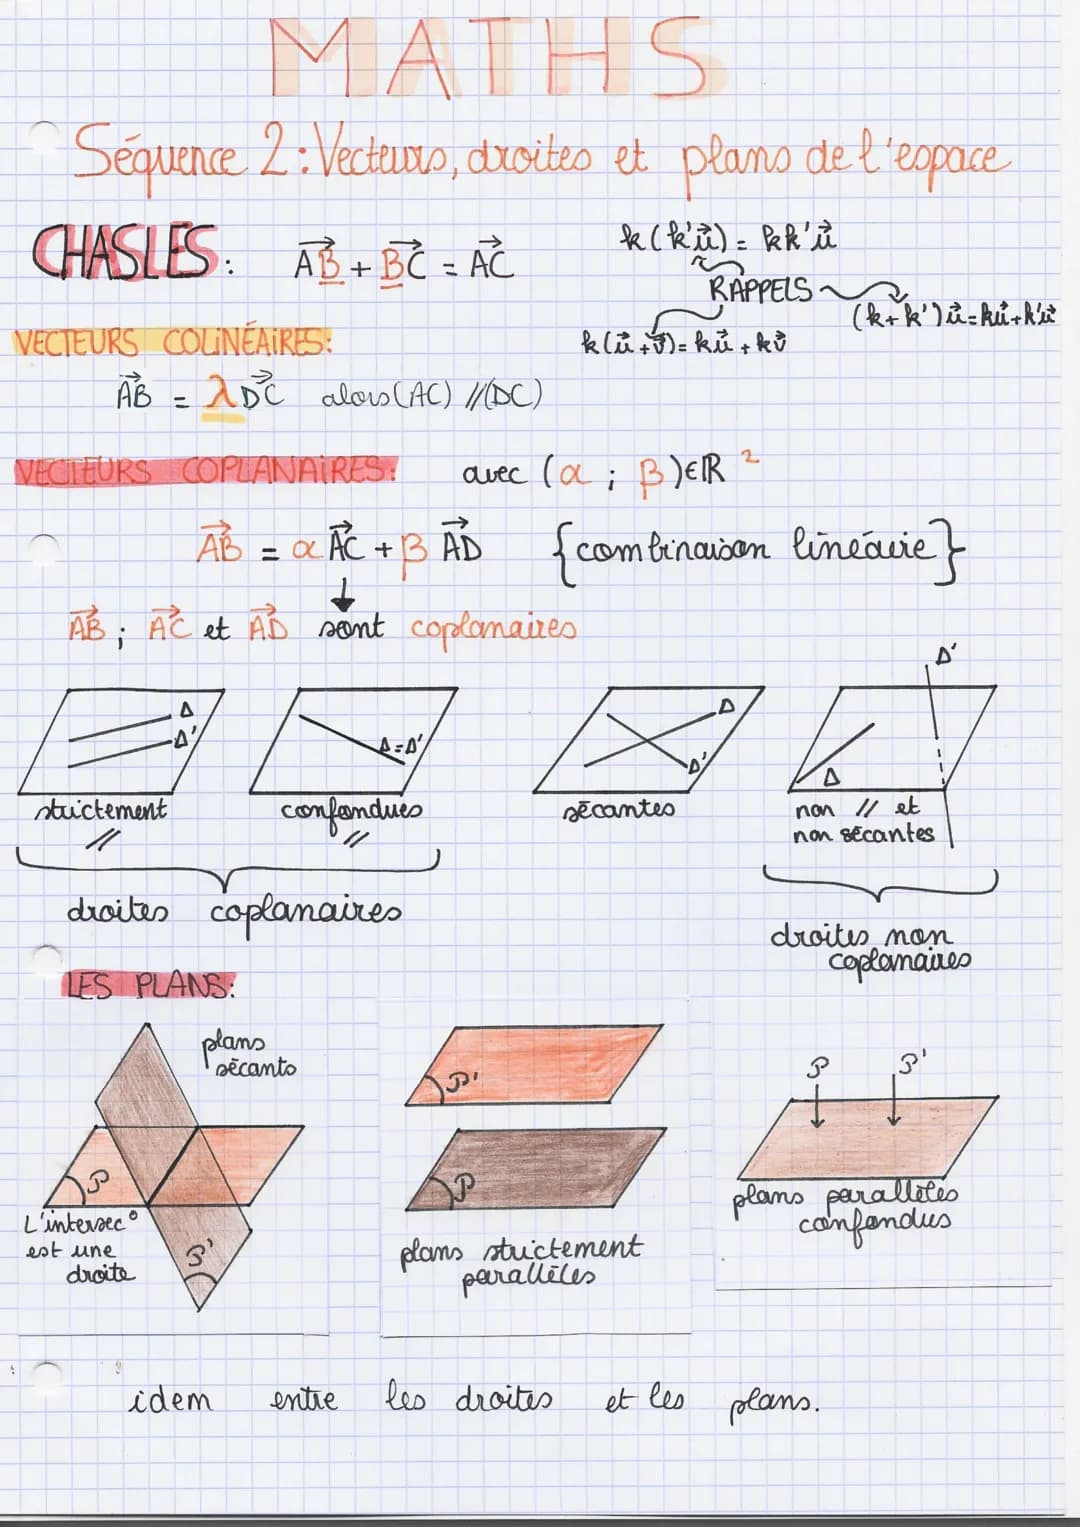 MATHS
Séquence 2 : Vecteurs, droites et plans de l'espace
CHASLES : AB⃗ + BC⃗ = AC⃗
k(k'u⃗) = kk'u⃗
RAPPELS
(k+k')u⃗ = ku⃗ + k'u⃗
k(u⃗+v⃗) = ku⃗ + kv⃗
VECTEURS COLINÉAIRES :
AB⃗ = λDC⃗ alors (AC) // (DC)
VECTEURS COPLANAIRES : avec (α ; β) ∈ ℝ²
AB⃗ = αAC⃗ + βAD⃗ {combinaison linéaire}
AB⃗ ; AC⃗ et AD⃗ sont coplanaires
Δ
Δ'
Δ=Δ'
Δ
Δ'
Δ
Δ'
strictement
//
confondues
//
sécantes
non // et
non sécantes
droites coplanaires
droites non
coplanaires
LES PLANS :
plans
sécants
P
P'
L'intersec°
est une
droite
P'
P
plans strictement
parallèles
P P'
plans parallèles
confondus
idem entre les droites et les plans.